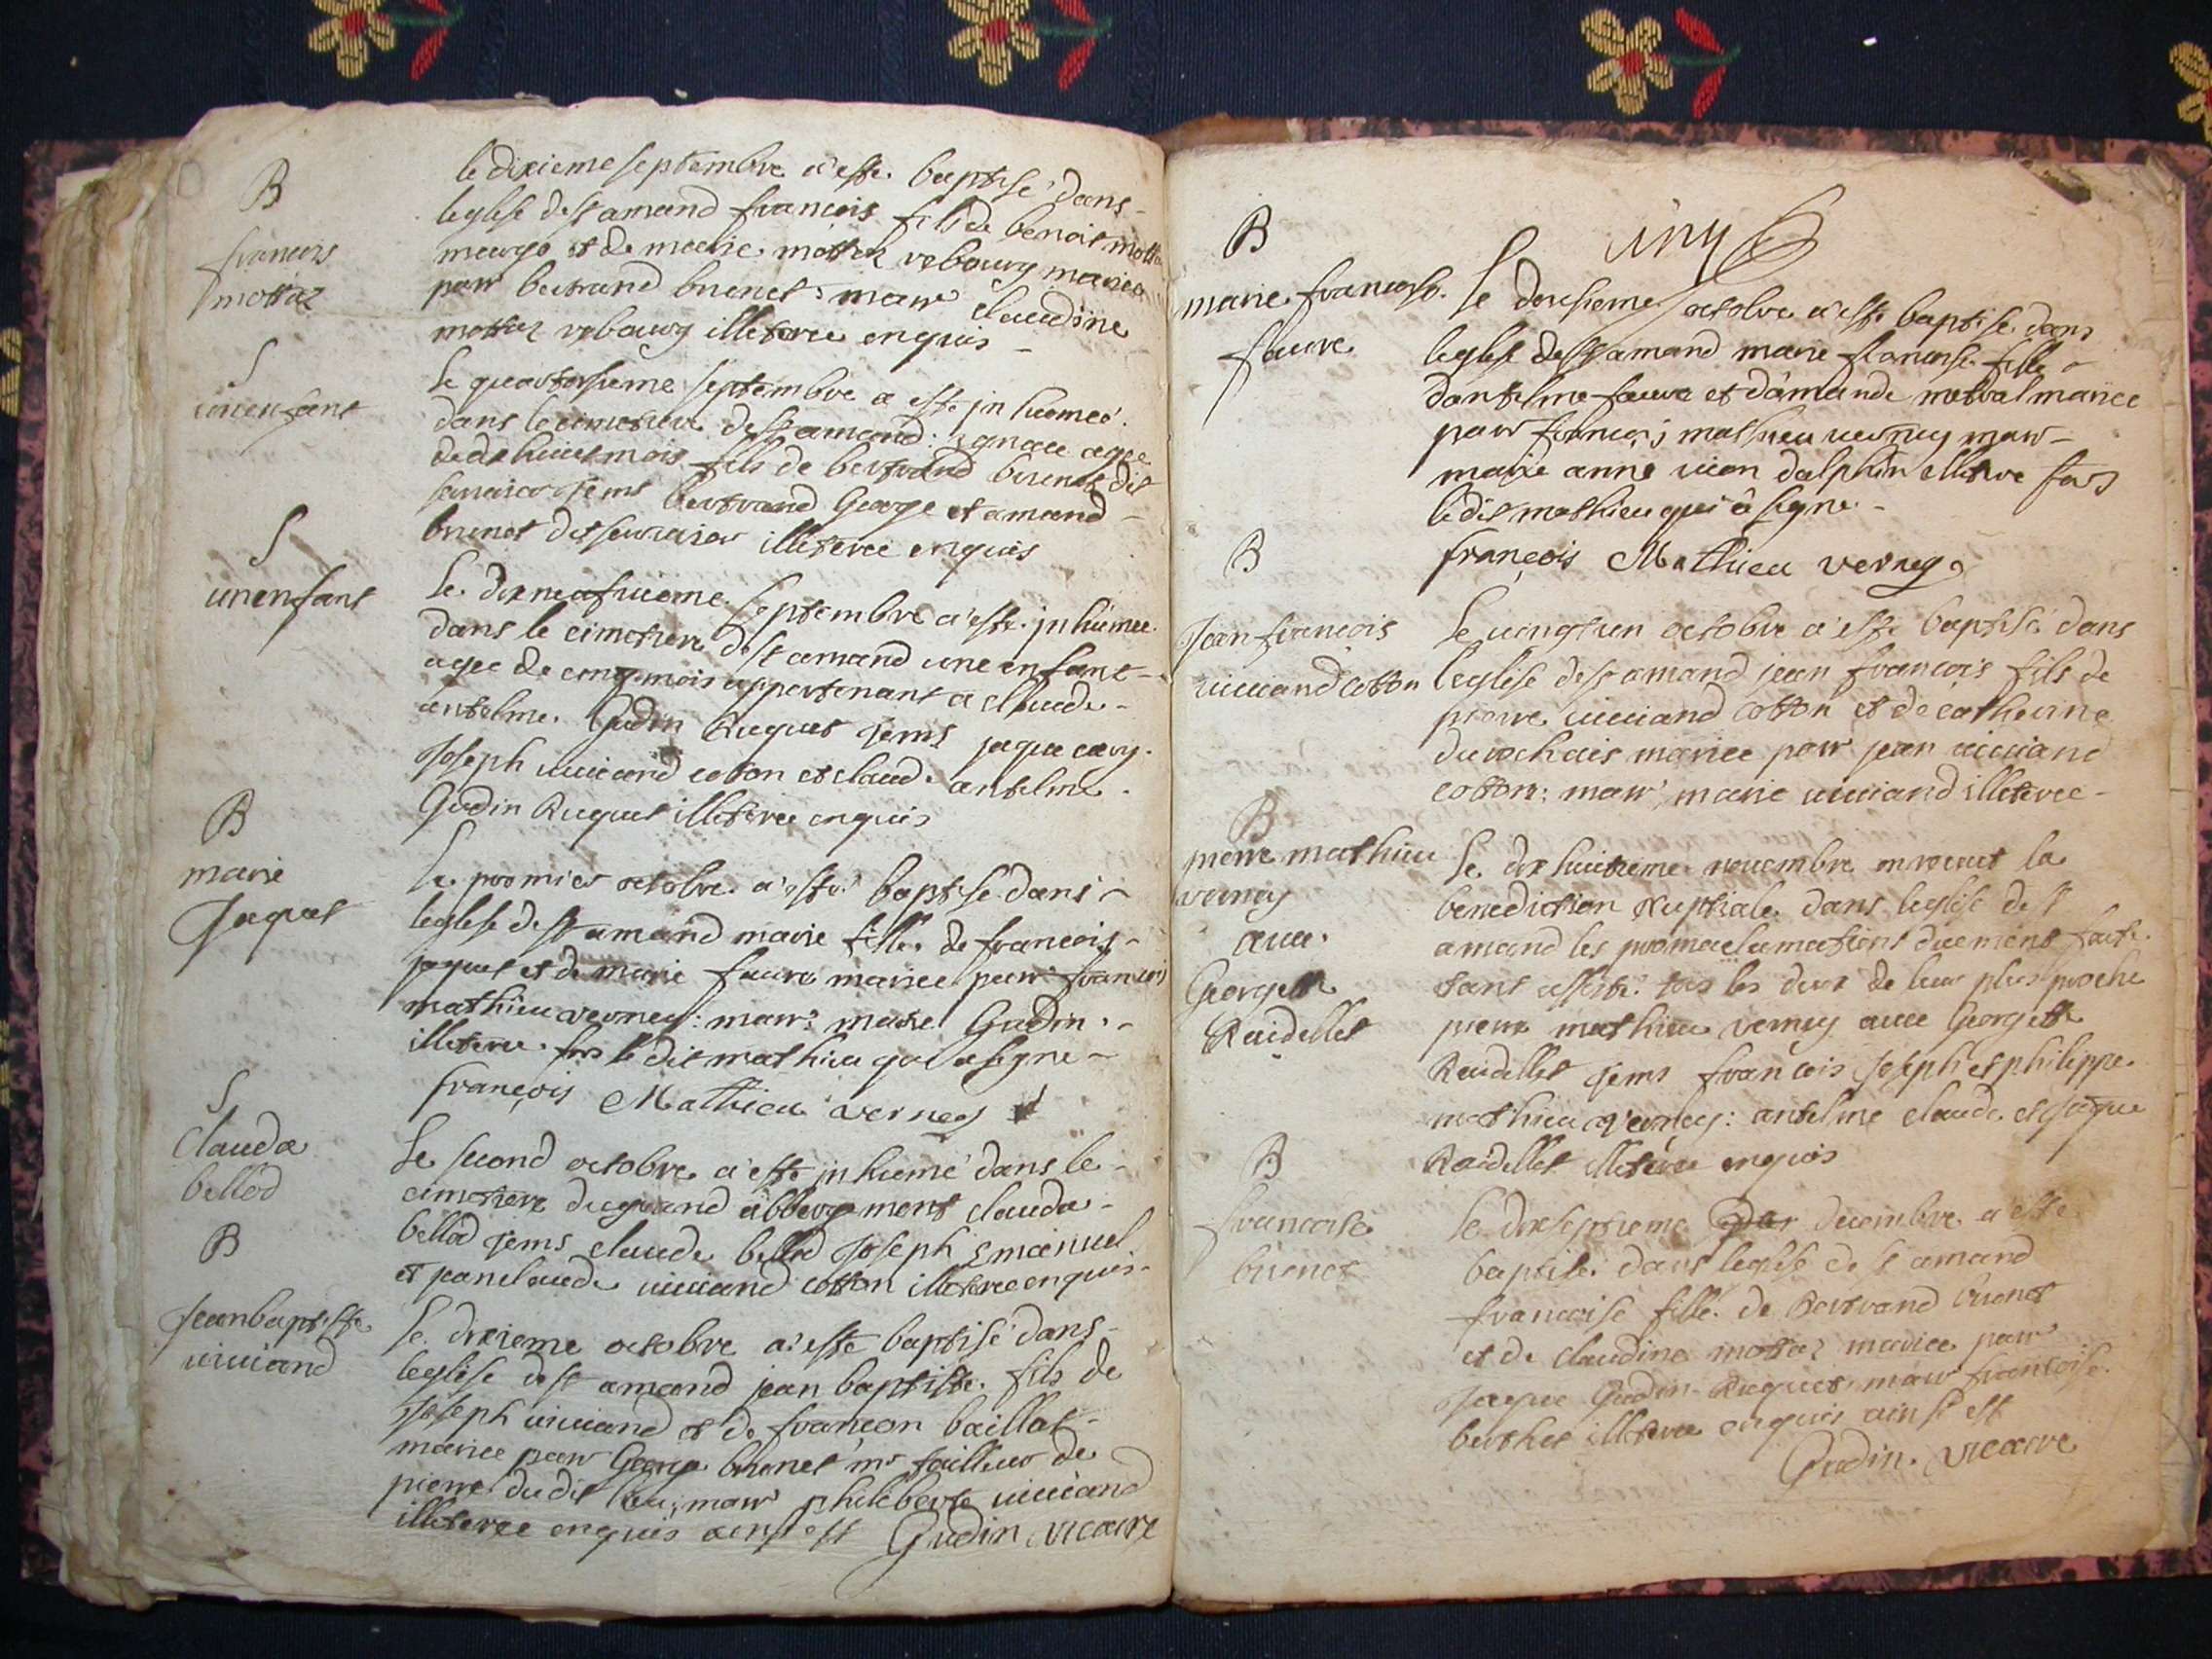 B
francois
mottaz
le dixieme septembre a esté baptisé dans
leglise de st amand francois fils de benoit motta
meurgo et de marie mottaz rebourg mariee
par bertrand brunet : mar claudine
mottaz rebourg illeteree enquis
S
un enfant
le quatorsieme septembre a esté jnhumeé
dans le cimetiere de st amand : ignace agee
de dixhuict mois fils de bertrand brunet dit
jems bertrand George et amand
brunet dit illeteree enquis
S
un enfant
Le dixneufvieme septembre a esté jnhumee
dans le cimetiere de st amand une enfant
agee de cinq mois appartenant a claude
antelme Gudin Ruquet jems jaque
Joseph uiuiand cotton et claude antelme
Gudin Ruquet illeteree enquis
B
marie
Jaquet
Le premier octobre a esté baptisé dans
leglise de st amand marie fille de francois
jaquet et de marie faure mariee par francois
mathieu verney : mar : marie Gudin
illeteree fors le dit mathieu qui a signe
françois Mathieu verney
S
Clauda
bellod
Le second octobre a esté jnhumé dans le
cimetiere du grand abbergement clauda
bellod jems claude bellod Joseph Emanuel
et jean claude uiuiand cotton illeteree enquis
B
Jean baptiste
uiuiand
Le dixieme octobre a esté baptisé dans
leglise de st amand jean baptiste fils de
Joseph uiuiand et de francon baillat
mariee par George brunet mr tailleur de
pierre du dit lieu, mar philiberte uiuiand
illeteree enquis ainsi est Gudin vicaire
B
marie francoise
faure
Le dousieme octobre a esté baptisé dans
leglise de st amand marie francoise fille
dantelme faure et damande metral mariee
par francois mathieu verney mar
marie anne uion dalphin illetere fors
ledit mathieu qui a signe
françois Mathieu verney
B
Jean francois
uiuiand cotton
Le uingt un octobre a esté baptisé dans
leglise de st amand jean francois fils de
pierre uiuiand cotton et de catherine
durochais mariee par jean uiuiand
cotton : mar marie uiuiand illeteree
B
pierre mathieu
verney
auec
Georgette
Raidellet
Le dixhuitieme nouembre on receut la
benediction nuptiale dans leglise de st
amand les promaclamations duement faite
tant assisté tos les deux de leur plus proche
pierre mathieu verney auec Georgette
Raidellet jems francois Joseph et philippe
mathieu verney : antelme claude et jaque
Raidellet illeteree enquis
B
francoise
brunet
Le dixseptieme decembre a esté
baptisé dans leglise de st amand
francoise fille de Bertrand brunet
et de claudine mottaz mariee par
Jaque Gudin Ruquet, mar francoise
berthet illeteree enquis ainsi est
Gudin vicaire